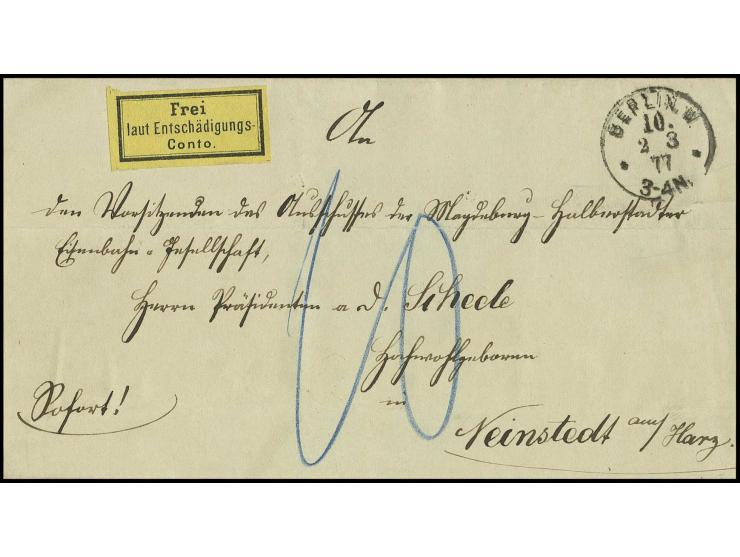 Frei
laut Entschädigungs-
Conto.
BERLIN. W.
10. 3
2 77
3-4N.
An
den Vorsitzenden des Ausschusses der Magdeburg-Halberstadter
Eisenbahn-Gesellschaft,
Herrn Präsidenten a. D. Scheele
Hochwohlgeboren
in
Sofort!
Neinstedt am/Harz.
10